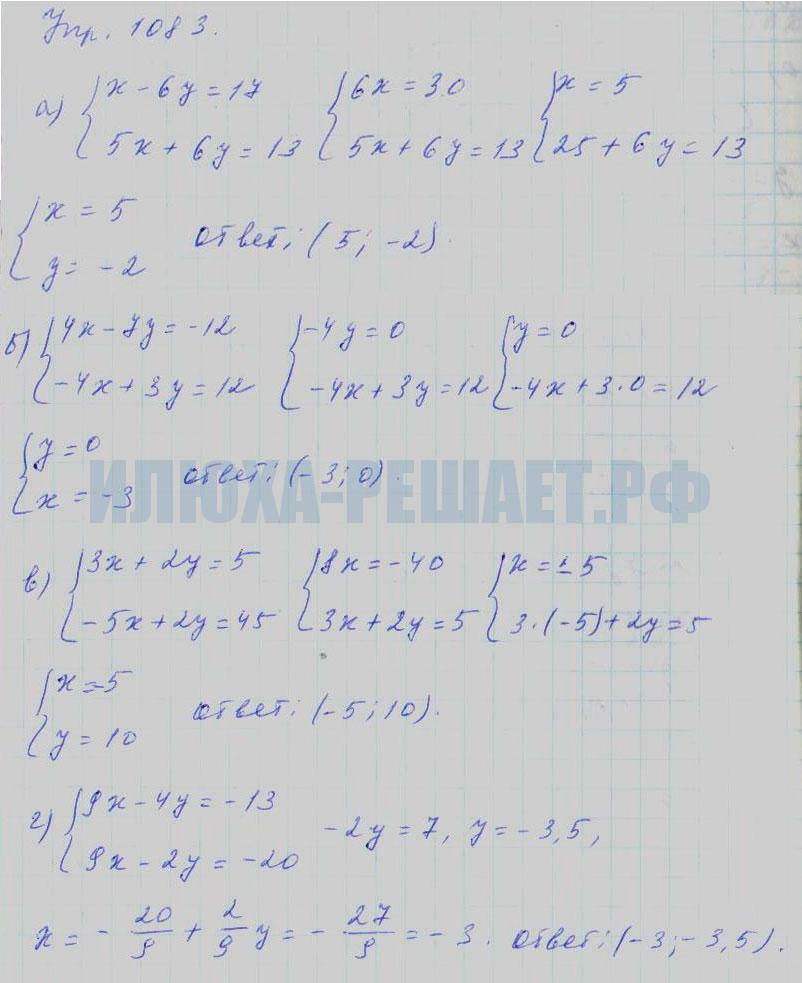 Упр. 1083.
а) { x - 6y = 17 { 6x = 30 { x = 5
5x + 6y = 13 5x + 6y = 13 25 + 6y = 13
{ x = 5
y = -2 ответ: (5; -2).
б) { 4x - 7y = -12 { -4y = 0 { y = 0
-4x + 3y = 12 -4x + 3y = 12 -4x + 3·0 = 12
{ y = 0
x = -3 ответ: (-3; 0).
ИЛЮХА-РЕШАЕТ.РФ
в) { 3x + 2y = 5 { 8x = -40 { x = -5
-5x + 2y = 45 3x + 2y = 5 3·(-5) + 2y = 5
{ x = -5
y = 10 ответ: (-5; 10).
г) { 9x - 4y = -13
9x - 2y = -20 -2y = 7, y = -3,5,
x = - 20/9 + 2/9 y = - 27/9 = -3. ответ: (-3; -3,5).